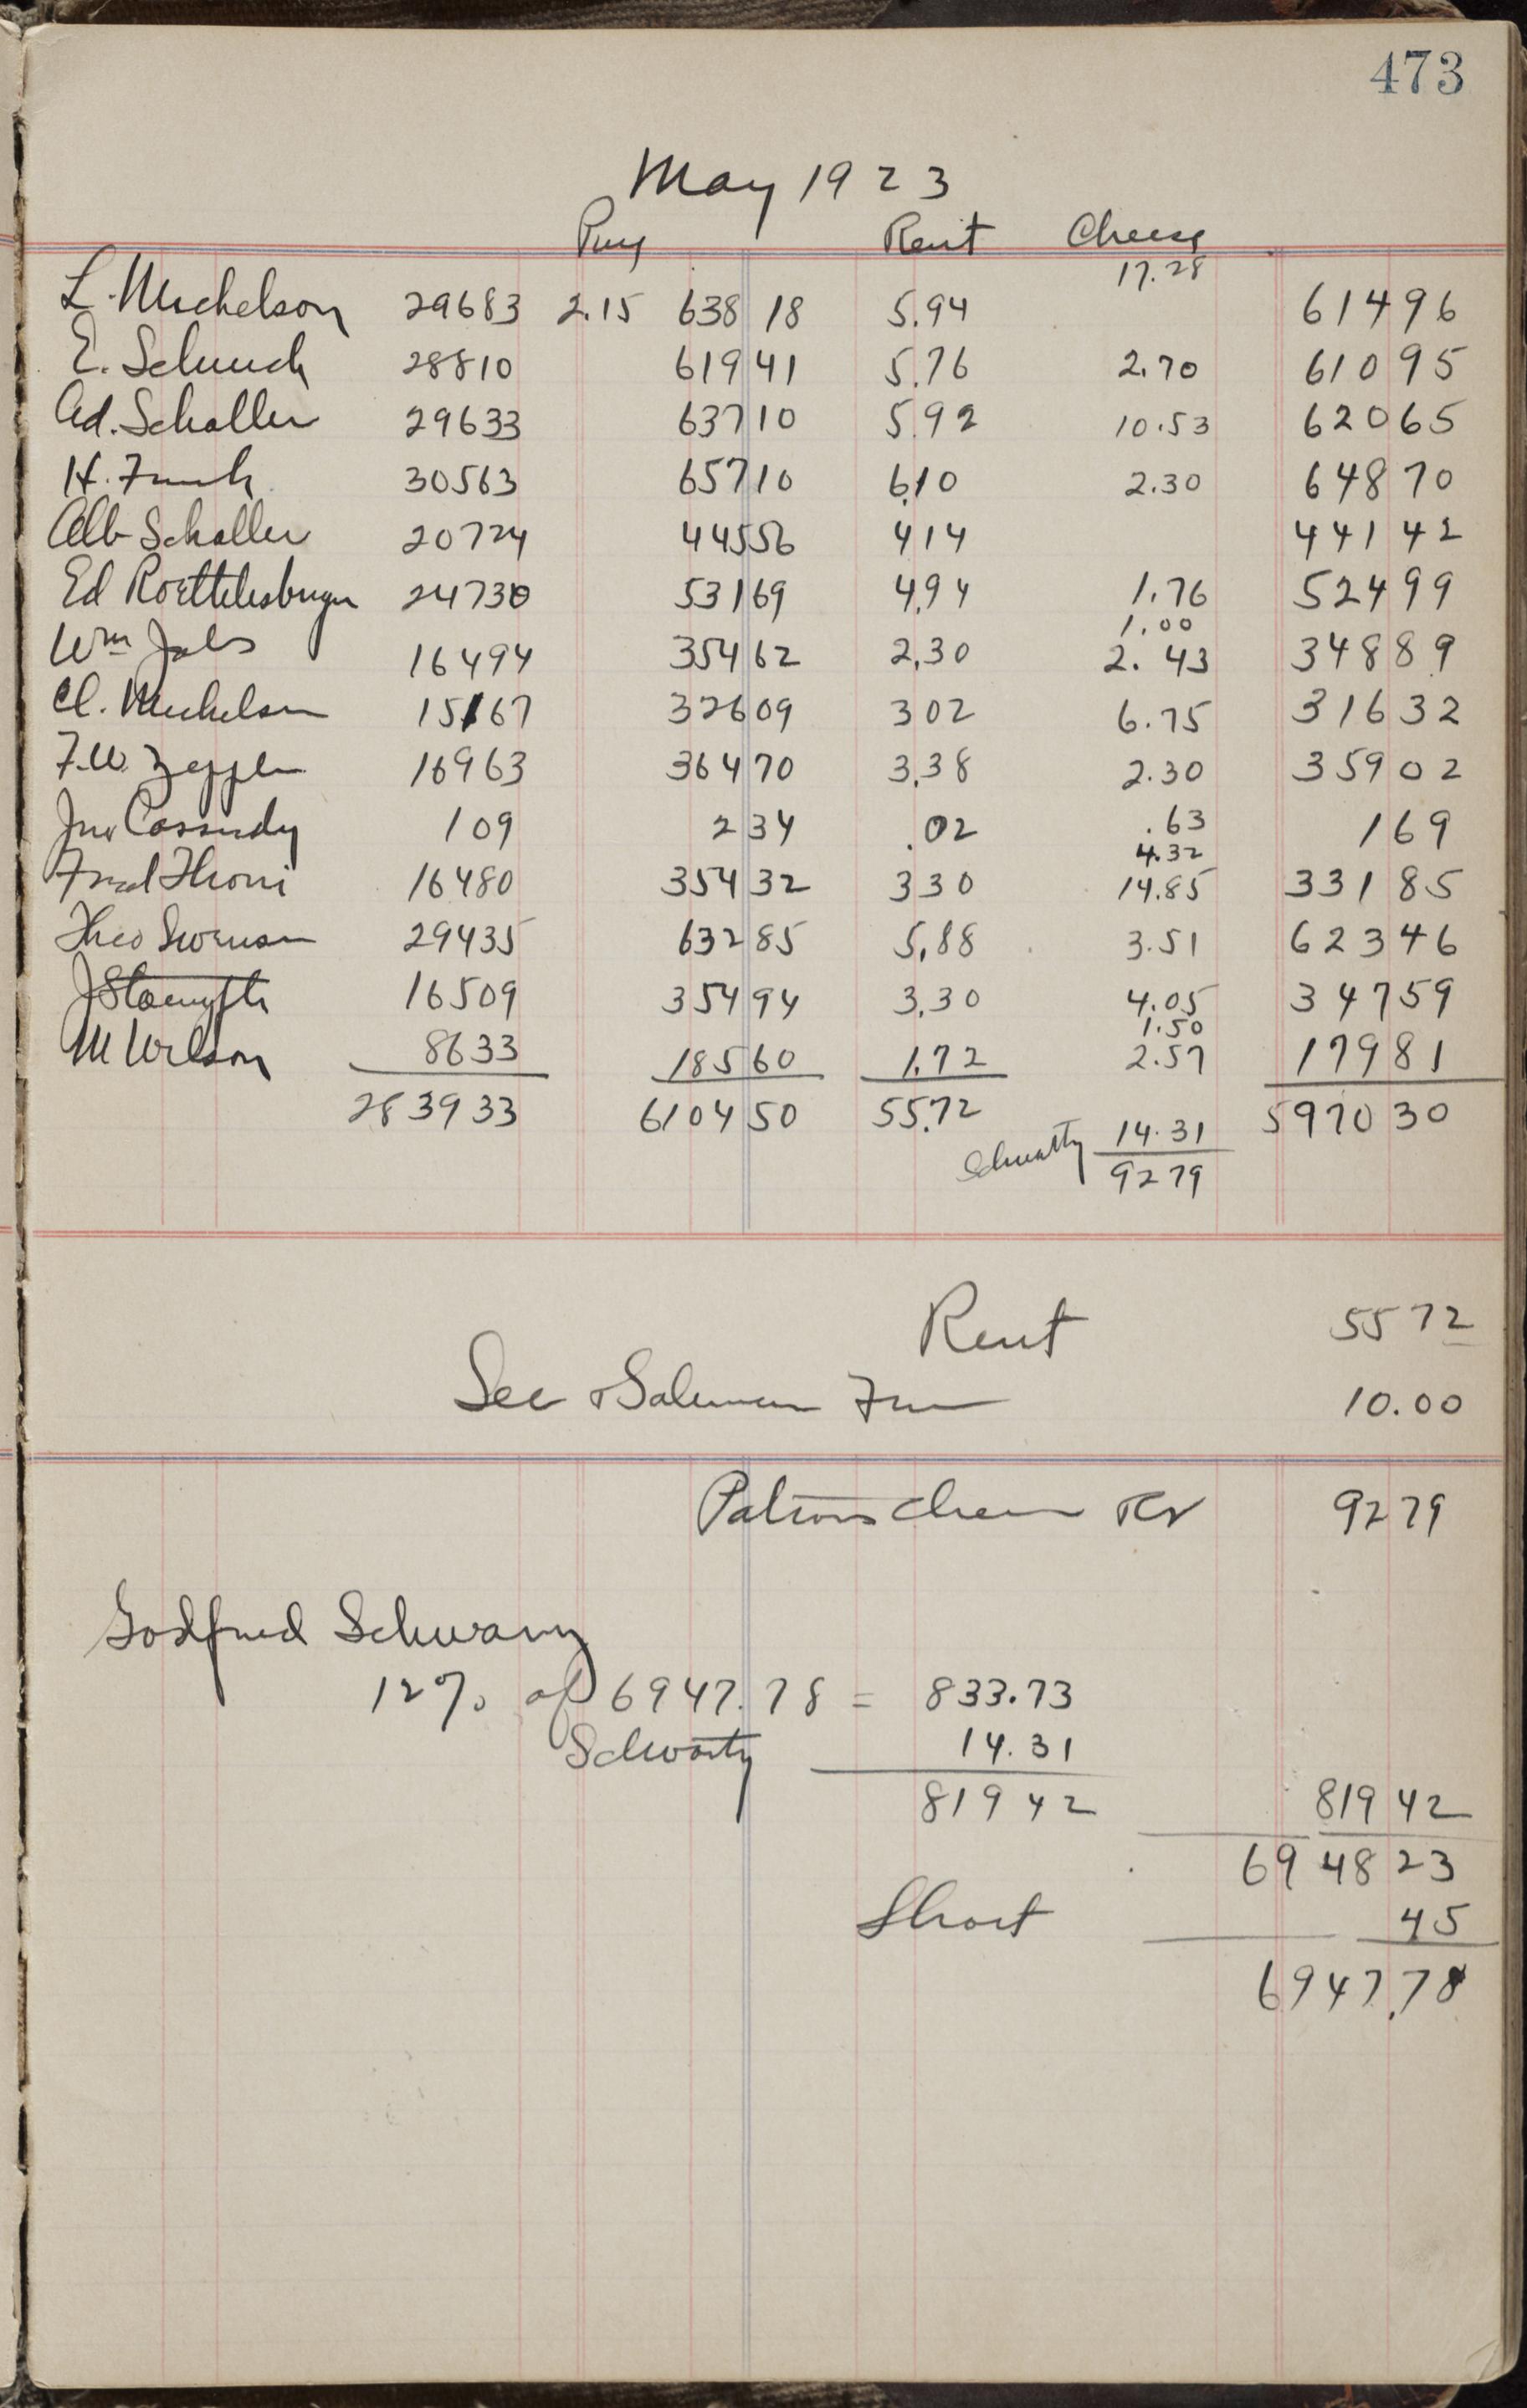 473
May 1923
Rent Cheese
17.28
L. Michelson 29683 2.15 638 18 5.94 614 96
E. Schuch 28810 619 41 5.76 2.70 610 95
Ad. Schaller 29633 637 10 5.92 10.53 620 65
H. Funk 30563 657 10 6.10 2.30 648 70
Alb Schaller 20724 445 56 4 14 441 42
Ed 24730 531 69 4.94 1.76 524 99
1.00
Wm 16494 354 62 2.30 2.43 348 89
Michelson 15167 326 09 3 02 6.75 316 32
F.W. 16963 364 70 3.38 2.30 359 02
Jno Cassidy 109 2 34 .02 .63 1 69
4.32
Fred Thoni 16480 354 32 3 30 14.85 331 85
Theo Swenson 29435 632 85 5.88 3.51 623 46
16509 354 94 3.30 4.05 347 59
1.50
M Wilson 8633 185 60 1.72 2.57 179 81
283933 6104 50 55.72 5970 30
14.31
92 79
Rent 55 72
Sec & Salesman 10.00
Patrons Cheese 92 79
Godfried
12% of 6947.78 = 833.73
14.31
819 42 819 42
6948 23
Short 45
6947.78